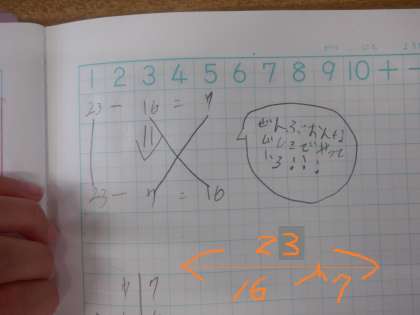 1 2 3 4 5 6 7 8 9 10 + -
23 - 16 = 7
23 - 7 = 16
ぜんぶおんな
じしきでやって
いる!!!
23
16 7
7